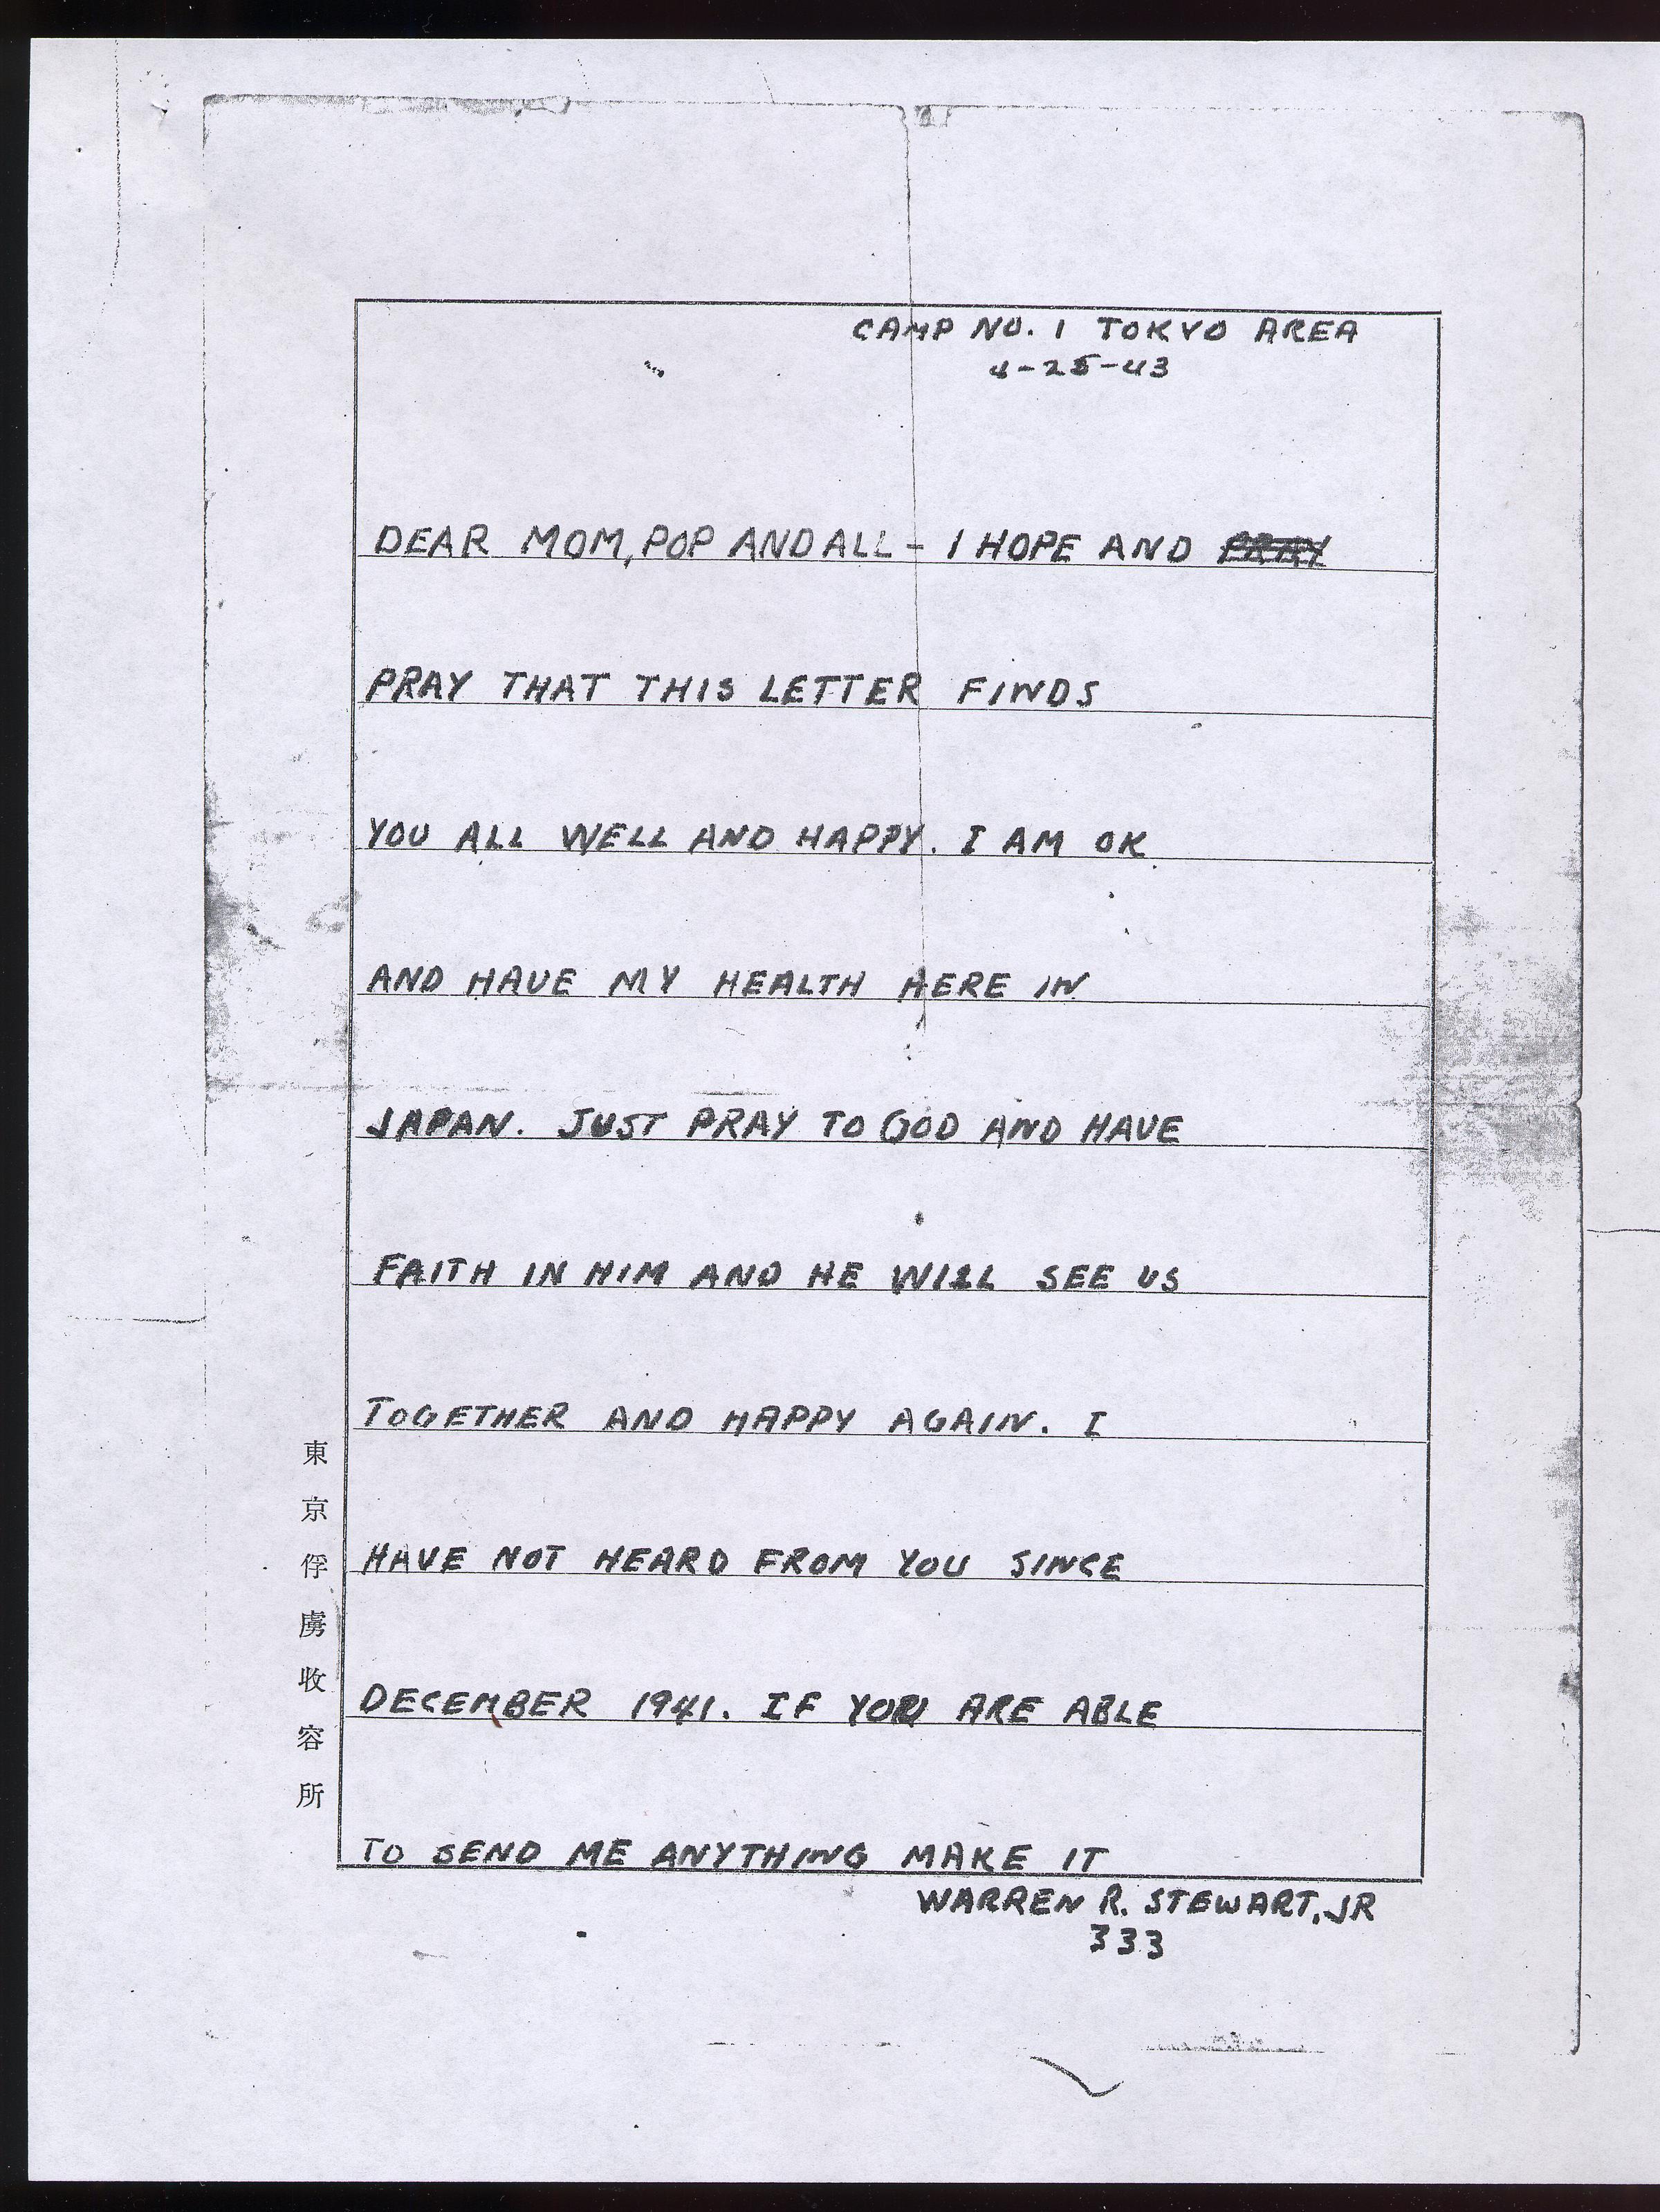 CAMP NO. 1 TOKYO AREA
4-25-43
DEAR MOM, POP AND ALL - I HOPE AND PRAY
PRAY THAT THIS LETTER FINDS
YOU ALL WELL AND HAPPY. I AM OK
AND HAVE MY HEALTH HERE IN
JAPAN. JUST PRAY TO GOD AND HAVE
FAITH IN HIM AND HE WILL SEE US
TOGETHER AND HAPPY AGAIN. I
HAVE NOT HEARD FROM YOU SINCE
DECEMBER 1941. IF YOU ARE ABLE
TO SEND ME ANYTHING MAKE IT
WARREN R. STEWART, JR
333
東京俘虜收容所